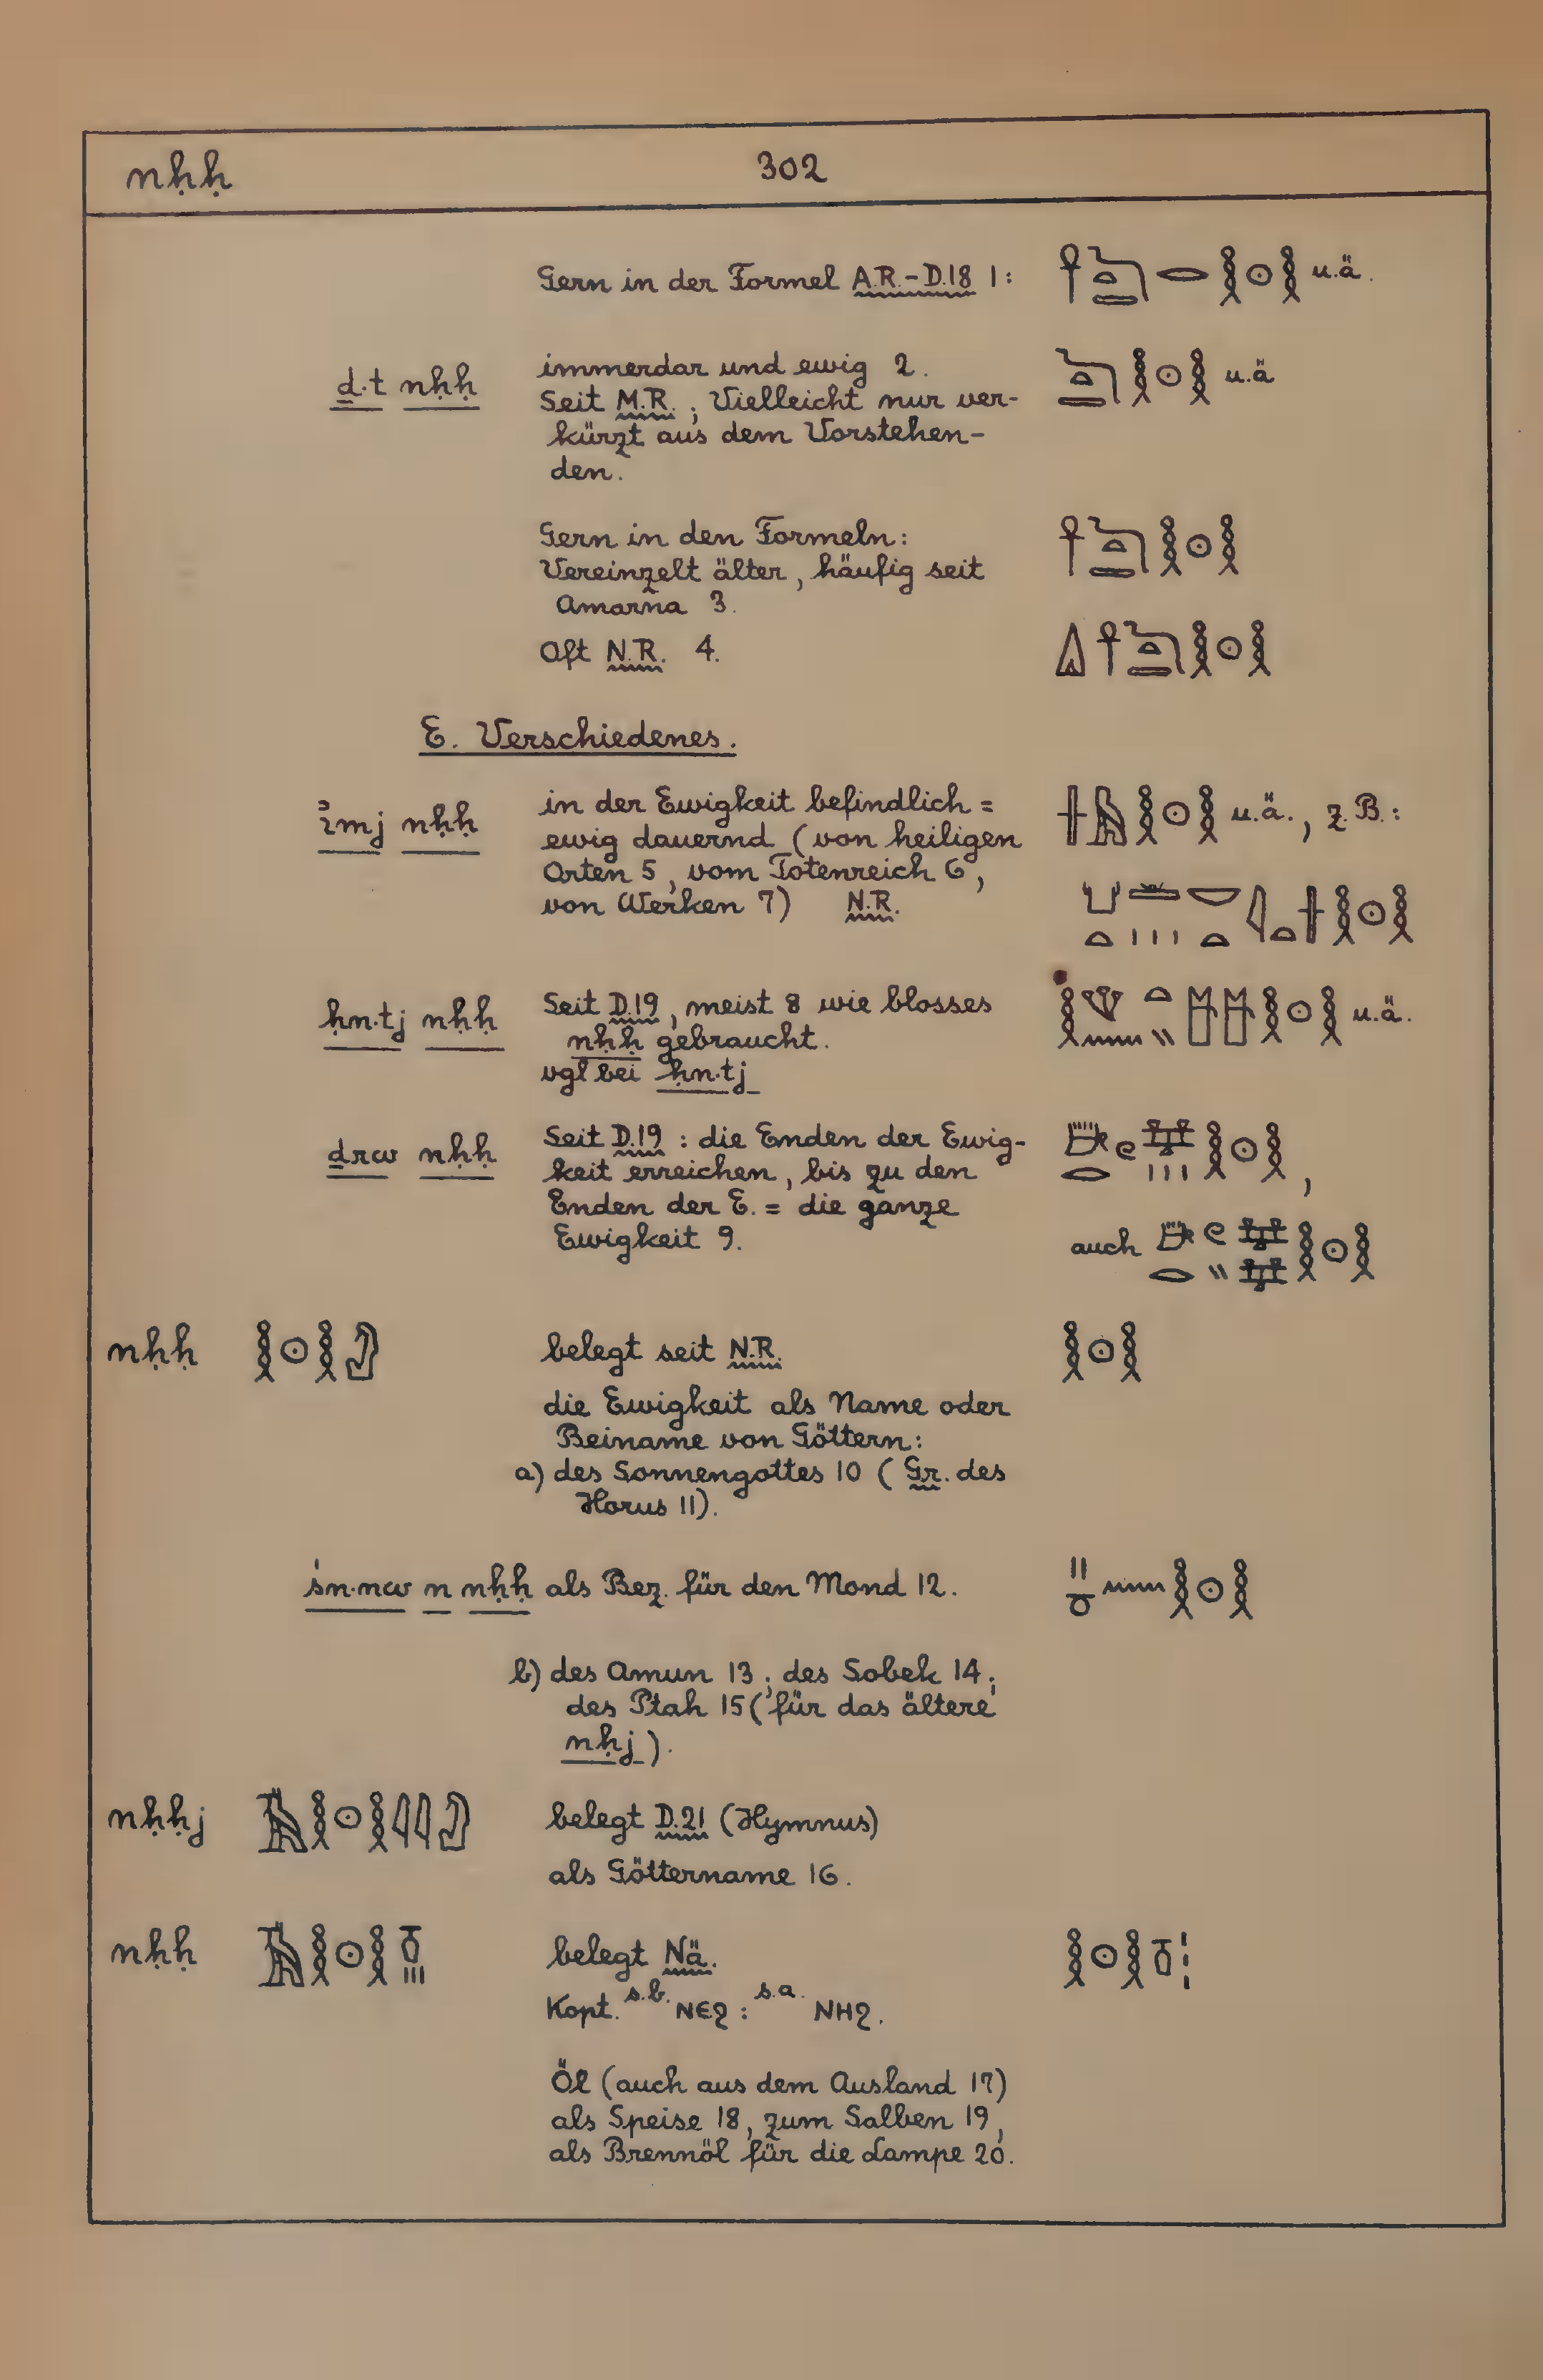 nḥḥ 302
Gern in der Formel A.R.-D.18 1: 𓋹𓆓𓏏𓇾𓂋𓎛𓇳𓎛 u.ä.
ḏ.t nḥḥ immerdar und ewig 2. 𓆓𓏏𓇾𓎛𓇳𓎛 u.ä
Seit M.R.; Vielleicht nur ver-
kürzt aus dem Vorstehen-
den.
Gern in den Formeln: 𓋹𓆓𓏏𓇾𓎛𓇳𓎛
Vereinzelt älter, häufig seit
Amarna 3.
Oft N.R. 4. 𓏙𓋹𓆓𓏏𓇾𓎛𓇳𓎛
E. Verschiedenes.
ỉmj nḥḥ in der Ewigkeit befindlich = 𓏶𓅓𓎛𓇳𓎛 u.ä., z.B.:
ewig dauernd (von heiligen
Orten 5, vom Totenreich 6,
von Werken 7) N.R. 𓎛𓇳𓎛
ḥn.tj nḥḥ Seit D.19, meist 8 wie blosses 𓎛𓇳𓎛 u.ä.
nḥḥ gebraucht.
vgl bei ḥn.tj
ḏrw nḥḥ Seit D.19: die Enden der Ewig- 𓎛𓇳𓎛,
keit erreichen, bis zu den
Enden der E. = die ganze
Ewigkeit 9. auch 𓎛𓇳𓎛
nḥḥ 𓎛𓇳𓎛𓀭 belegt seit N.R. 𓎛𓇳𓎛
die Ewigkeit als Name oder
Beiname von Göttern:
a) des Sonnengottes 10 (Gr. des
Horus 11).
ś́n.nw n nḥḥ als Bez. für den Mond 12. 𓏮𓏌𓈖𓎛𓇳𓎛
b) des Amun 13; des Sobek 14;
des Ptah 15 (für das ältere
nḥj).
nḥḥj 𓅘𓎛𓇳𓎛𓇋𓇋𓀭 belegt D.21 (Hymnus)
als Göttername 16.
nḥḥ 𓅘𓎛𓇳𓎛𓏊𓏥 belegt Nä. 𓎛𓇳𓎛𓏊𓏦
Kopt. s.b. ⲚⲈϨ : s.a. ⲚⲎϨ.
Öl (auch aus dem Ausland 17)
als Speise 18, zum Salben 19,
als Brennöl für die Lampe 20.